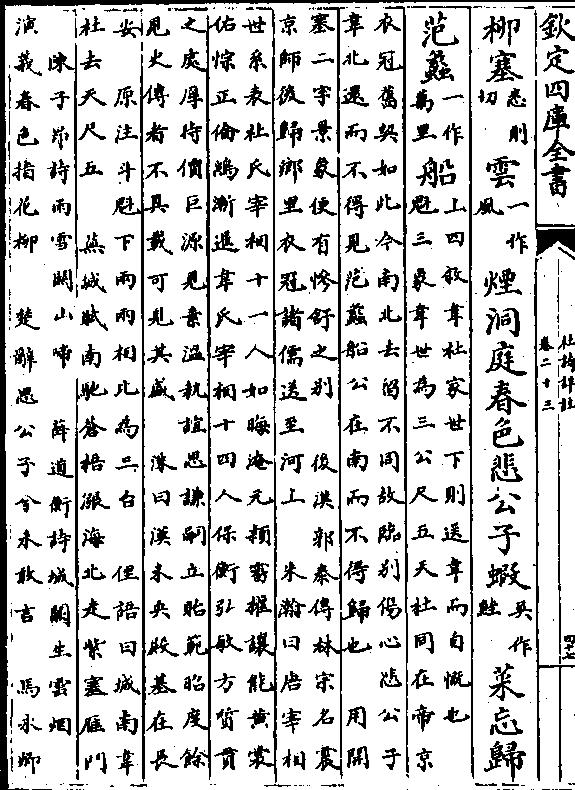 欽定四庫全書
杜詩詳註
卷二十三
四十七
柳塞悉則切雲一作風煙洞庭春色悲公子蝦吳作鮭菜忘歸
范蠡一作萬里船上四敘韋杜家世下則送韋而自慨也
魁三象韋世為三公尺五天杜同在帝京
衣冠舊契如此今南北去留不同故臨別傷心悲公子
韋北還而不得見范蠡船公在南而不得歸也 用關
塞二字景象便有慘舒之別 後漢郭泰傳林宗名震
京師後歸鄉里衣冠諸儒送至河上 朱瀚曰唐宰相
世系表杜氏宰相十一人如晦淹元穎審權讓能黃裳
佑悰正倫鴻漸暹韋氏宰相十四人保衡弘敏方質貫
之處厚待價巨源見素溫執誼思謙嗣立貽範昭度餘
見史傳者不具載可見其盛 洙曰漢未央殿基在長
安 原注斗魁下兩兩相比為三台 俚語曰城南韋
杜去天尺五 蕪城賦南馳蒼梧漲海北走紫塞雁門
陳子昂詩雨雪關山暗 薛道衡詩城闕生雲烟
演義春色指花柳 楚辭思公子兮未敢言 馬永卿